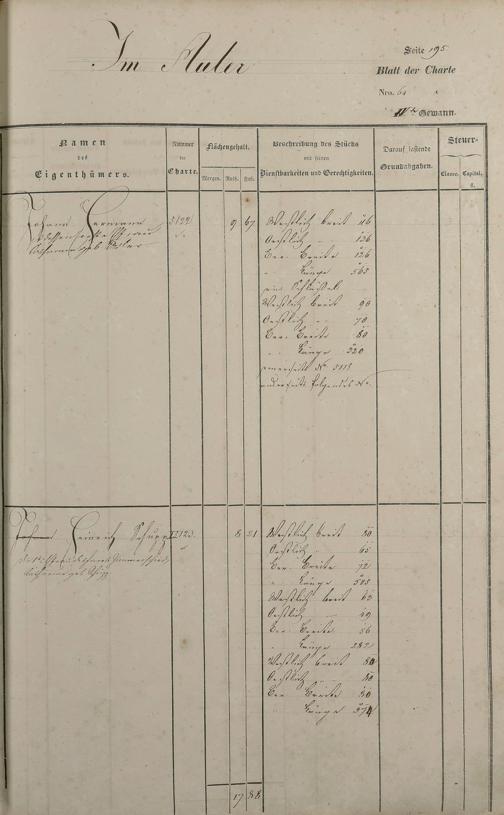 Im Auler
Seite 195
Blatt der Charte
Nro. 61
IIte Gewann.
Namen
des
Eigenthümers.
Nummer
der
Charte.
Flächengehalt.
Morgen. Ruth. Fuß.
Beschreibung des Stücks
mit seinen
Dienstbarkeiten und Gerechtigkeiten.
Darauf lastende
Grundabgaben.
Steuer-
Classe. Capital,
fl.
Johann Hermann
5122 9 67
Westlich breit
Oestlich " 136
Ber. Breite 126
" Länge 565
ein Schlüssel
Westlich breit 90
Oestlich " 70
Ber. Breite 80
" Länge 320
einerseits No
anderseits folgendes No.
Johann Heinrich Schupp
5123. 8 21
Westlich breit 80
Oestlich " 65
Ber. Breite 72
" Länge 505
Westlich breit 63
Oestlich " 49
Ber. Breite 56
" Länge 282
Westlich breit 80
Oestlich " 80
Ber. Breite 80
" Länge 374
17 88